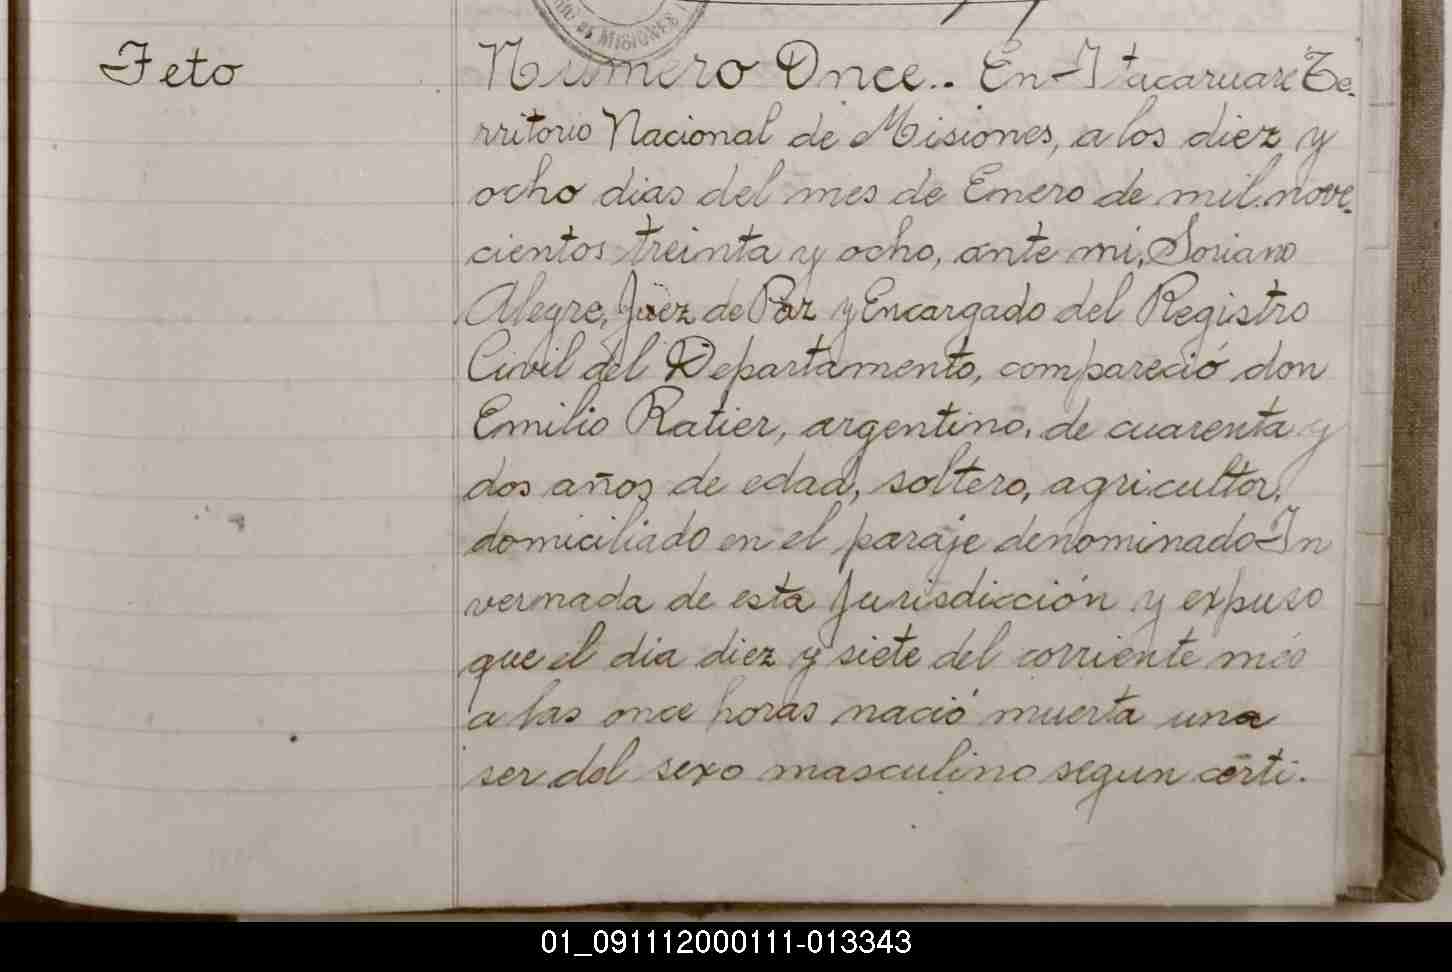 DE MISIONES
Feto
Numero Once.. En Itacaruare Te-
rritorio Nacional de Misiones, a los diez y
ocho dias del mes de Enero de mil nove-
cientos treinta y ocho, ante mi, Soriano
Alegre, Juez de Paz y Encargado del Registro
Civil del Departamento, compareció don
Emilio Ratier, argentino, de cuarenta y
dos años de edad, soltero, agricultor,
domiciliado en el paraje denominado In
vernada de esta Jurisdicción y expuso
que el dia diez y siete del corriente mes
a las once horas nació muerta una
ser del sexo masculino segun certi-
01_091112000111-013343